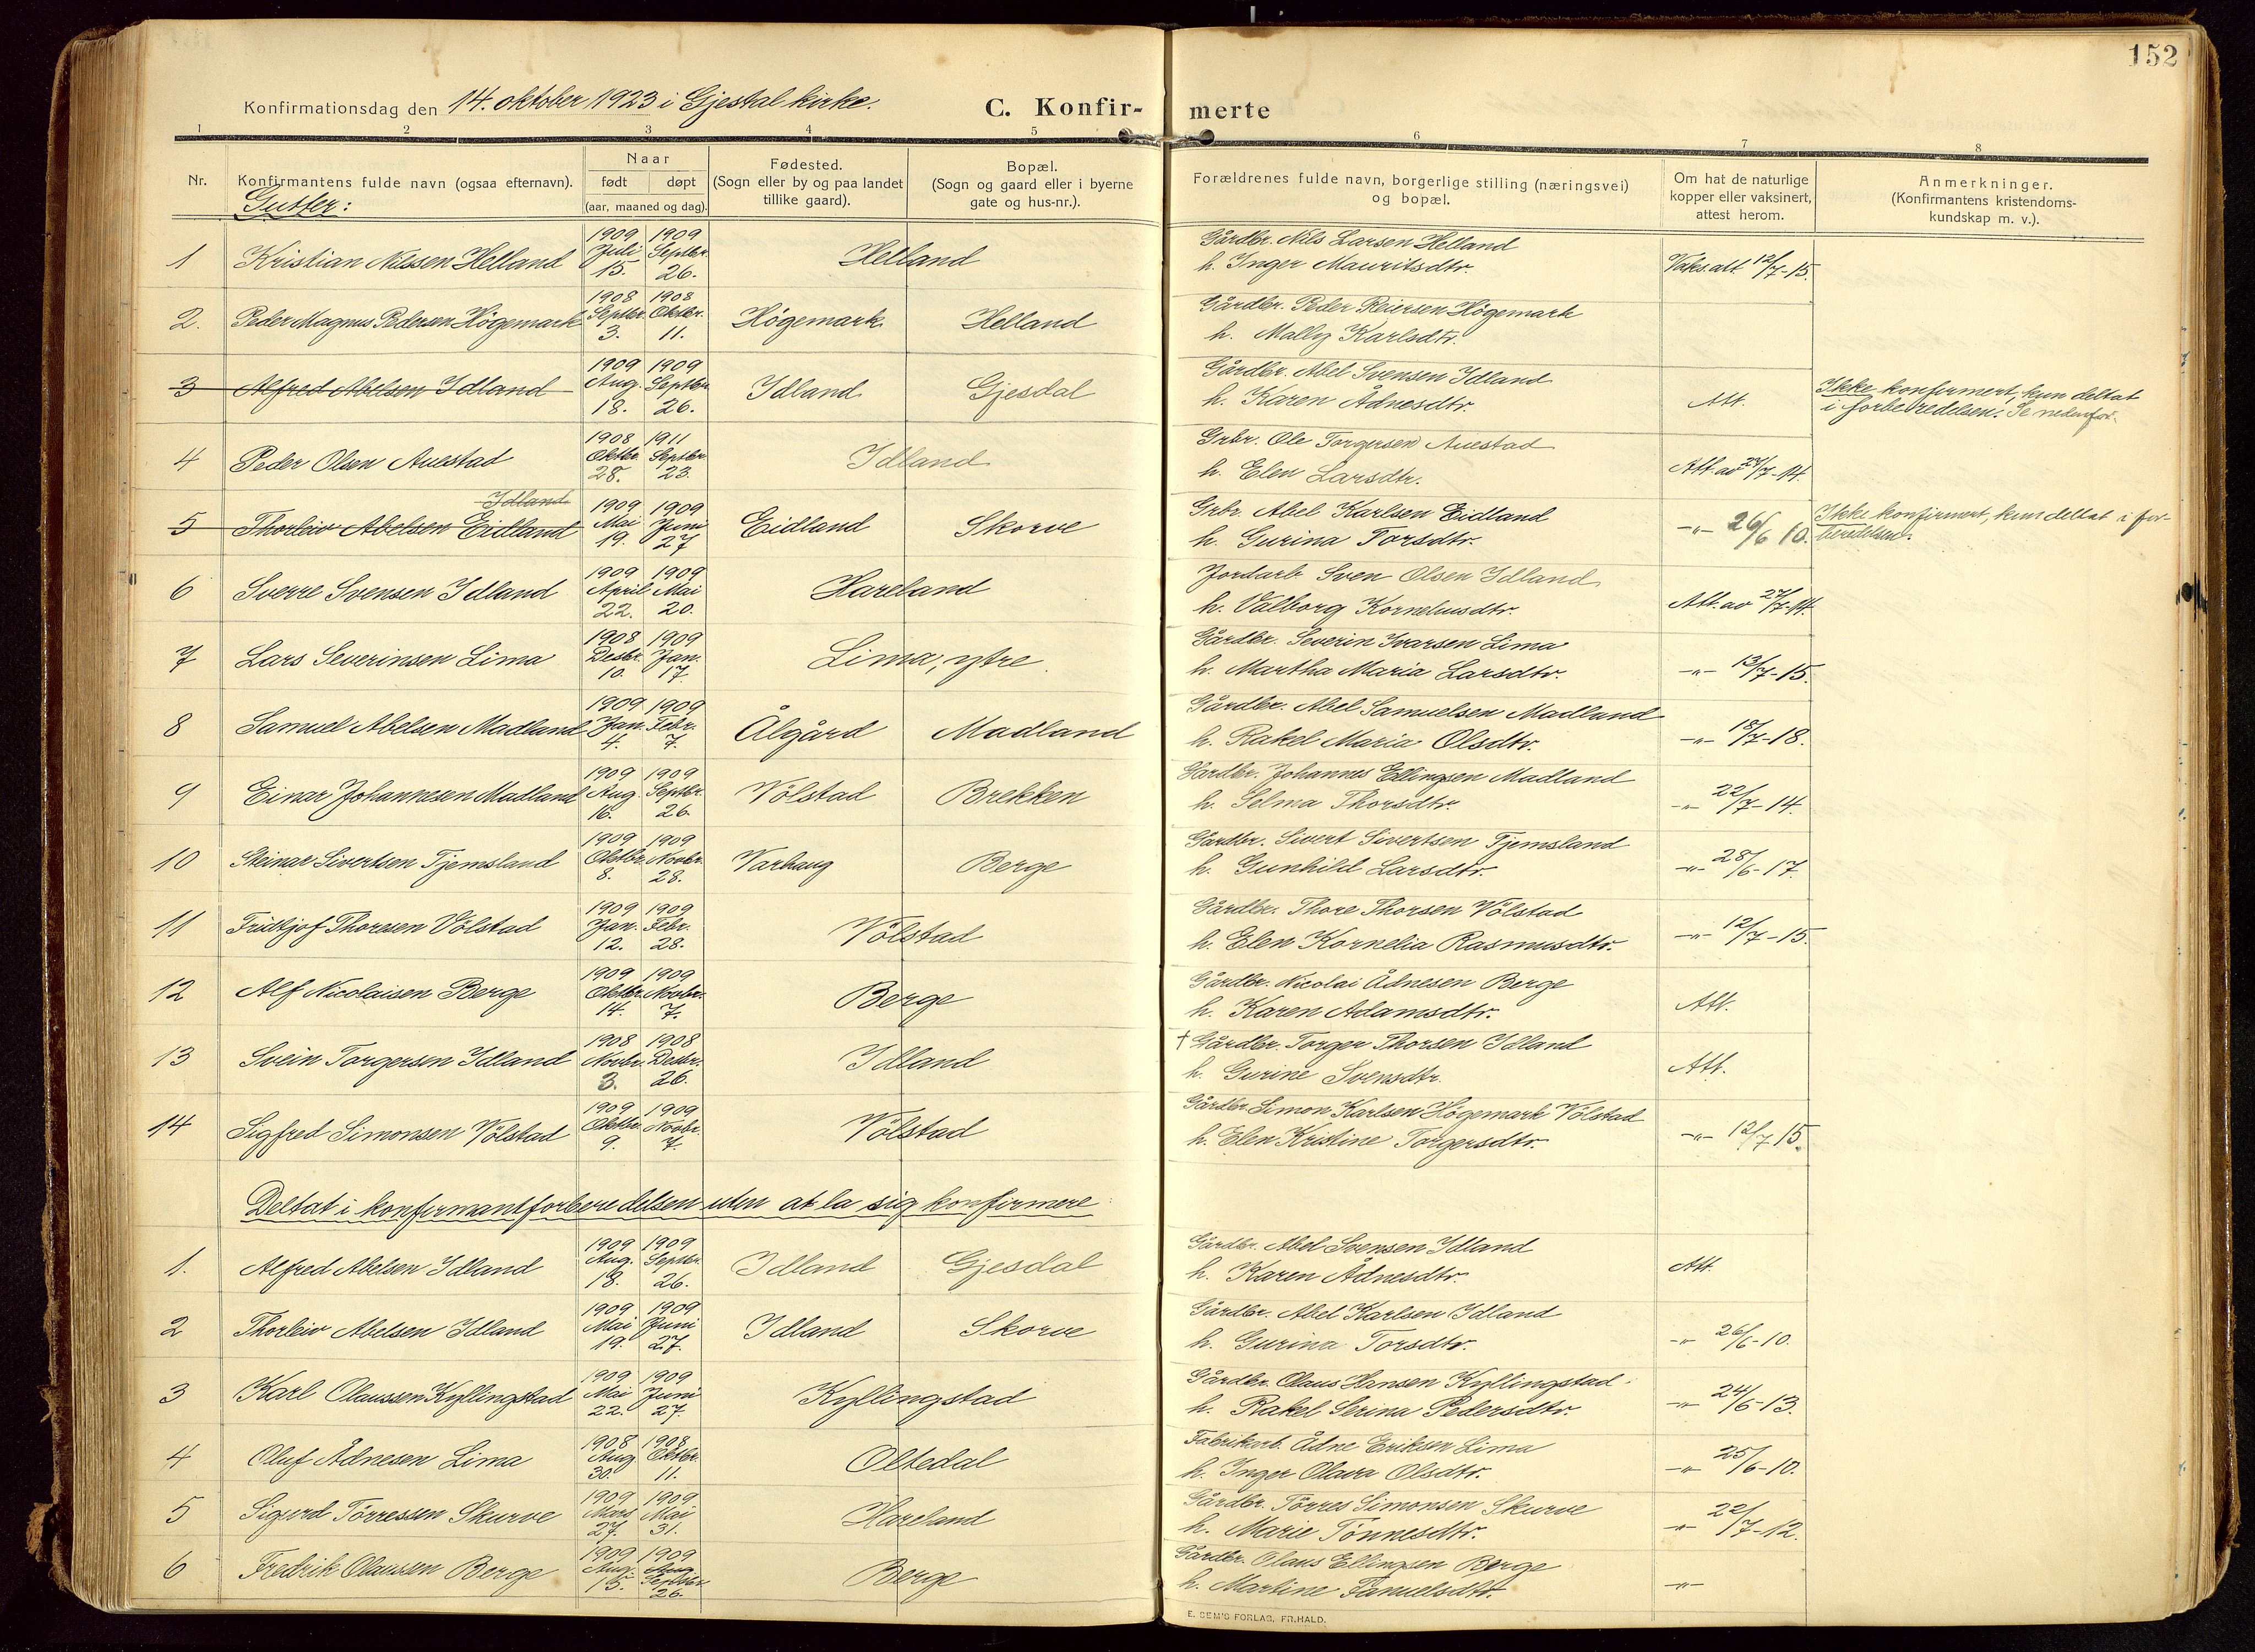 152
Konfirmationsdag den 14. oktober 1923 i Gjestal kirke.
C. Konfir- merte
1 2 3 4 5 6 7 8
Nr.
Konfirmantens fulde navn (ogsaa efternavn).
Naar
født døpt
(aar, maaned og dag).
Fødested.
(Sogn eller by og paa landet
tillike gaard).
Bopæl.
(Sogn og gaard eller i byerne
gate og hus-nr.).
Forældrenes fulde navn, borgerlige stilling (næringsvei)
og bopæl.
Om hat de naturlige
kopper eller vaksinert,
attest herom.
Anmerkninger.
(Konfirmantens kristendoms-
kundskap m. v.).
Gutter:
1 Kristian Nilssen Helland 1909 Juli 15. 1909 Septbr. 26. Helland
Gårdbr. Nils Larsen Helland
h. Inger Mauritsdtr. Vaks.att 12/7-15.
2. Peder Magnus Pedersen Högemark 1908 Septbr. 3. 1908 Oktbr. 11. Högemark Helland
Gårdbr. Peder Reiersen Högemark
h. Mally Karlsdtr.
3 Alfred Abelsen Idland 1909 Aug. 18. 1909 Septbr. 26. Idland Gjesdal
Gårdbr. Abel Svensen Idland
h. Karen Ådnesdtr. Att.
Ikke konfirmert, kun deltat
i forberedelsen. Se nedenfor.
4 Peder Olsen Auestad 1908 Oktbr. 28. 1911 Septbr. 23. Idland
Grbr. Ole Torgersen Auestad
h. Elen Larsdtr. Att. av 24/7-14.
Idland
5 Thorleiv Abelsen Eidland 1909 Mai 19. 1909 Juni 27 Eidland Skorve
Grbr. Abel Karlsen Eidland
h. Gurina Torsdtr. -"- 26/6 10.
Ikke konfirmert, kun deltat i for-
beredelsen.
6 Sverre Svensen Idland 1909 April 22. 1909 Mai 20. Hareland
Jordarb. Sven Olsen Idland
h. Valborg Korneliusdtr. Att. av 27/7-14.
7 Lars Severinsen Lima 1908 Desbr. 10. 1909 Jan. 17. Lima, ytre.
Gårdbr. Severin Ivarsen Lima
h. Martha Maria Larsdtr. -"- 13/7-15.
8 Samuel Abelsen Madland 1909 Jan. 4. 1909 Febr. 7. Ålgård Madland
Gårdbr. Abel Samuelsen Madland
h. Rakel Maria Olsdtr. -"- 18/7-18.
9 Einar Johannesen Madland 1909 Aug. 16. 1909 Septbr. 26. Völstad Brekken
Gårdbr. Johannes Ellingsen Madland
h. Selma Thorsdtr. -"- 22/7-14.
10 Steinar Sivertsen Tjemsland 1909 Oktbr. 8. 1909 Novbr. 28. Varhaug Berge
Gårdbr. Sivert Sivertsen Tjemsland
h. Gunhild Larsdtr. -"- 28/6-17.
11 Fridtjof Thoresen Völstad 1909 Jan. 12. 1909 Febr. 28. Völstad
Gårdbr. Thore Thorsen Völstad
h. Elen Kornelia Rasmusdtr. -"- 12/7-15.
12 Alf Nicolaisen Berge 1909 Oktbr. 14. 1909 Novbr. 7. Berge
Gårdbr. Nicolai Ådnesen Berge
h. Karen Adamsdtr. Att.
13 Svein Torgersen Idland 1908 Novbr. 3. 1908 Desbr. 26. Idland
† Gårdbr. Torger Thorsen Idland
h. Gurine Svensdtr. Att.
14 Sigfred Simonsen Völstad 1909 Oktbr. 9. 1909 Novbr. 7. Völstad
Gårdbr. Simon Karlsen Högemark Völstad
h. Elen Kristine Torgersdtr. -"- 12/7 15.
Deltat i konfirmantforberedelsen uten at la sig konfirmere
1. Alfred Abelsen Idland 1909 Aug. 18. 1909 Septbr. 26. Idland Gjesdal
Gårdbr. Abel Svensen Idland
h. Karen Ådnesdtr. Att.
2 Thorleiv Abelsen Idland 1909 Mai 19. 1909 Juni 27. Idland Skorve
Gårdbr. Abel Karlsen Idland
h. Gurina Torsdtr. -"- 26/6-10.
3 Karl Olaussen Kyllingstad 1909 Mai 22. 1909 Juni 27. Kyllingstad
Gårdbr. Olaus Hansen Kyllingstad
h. Rakel Serina Pedersdtr. -"- 24/6-13.
4 Oluf Ådnesen Lima 1908 Aug. 30. 1908 Oktbr. 11. Oltedal
Fabrikarb. Ådne Eriksen Lima
h. Inger Olava Olsdtr. -"- 25/6-10.
5 Sigurd Törressen Skurve 1909 Mars 27. 1909 Mai 31. Hareland
Gårdbr. Törres Simonsen Skurve
h. Marie Tönnesdtr. -"- 22/7-12.
6 Fredrik Olaussen Berge 1909 Aug. 15. 1909 Aug. Septbr. 26. Berge
Gårdbr. Olaus Ellingsen Berge
h. Martine Samuelsdtr. -"-
E. SEM'S FORLAG, FR.HALD.